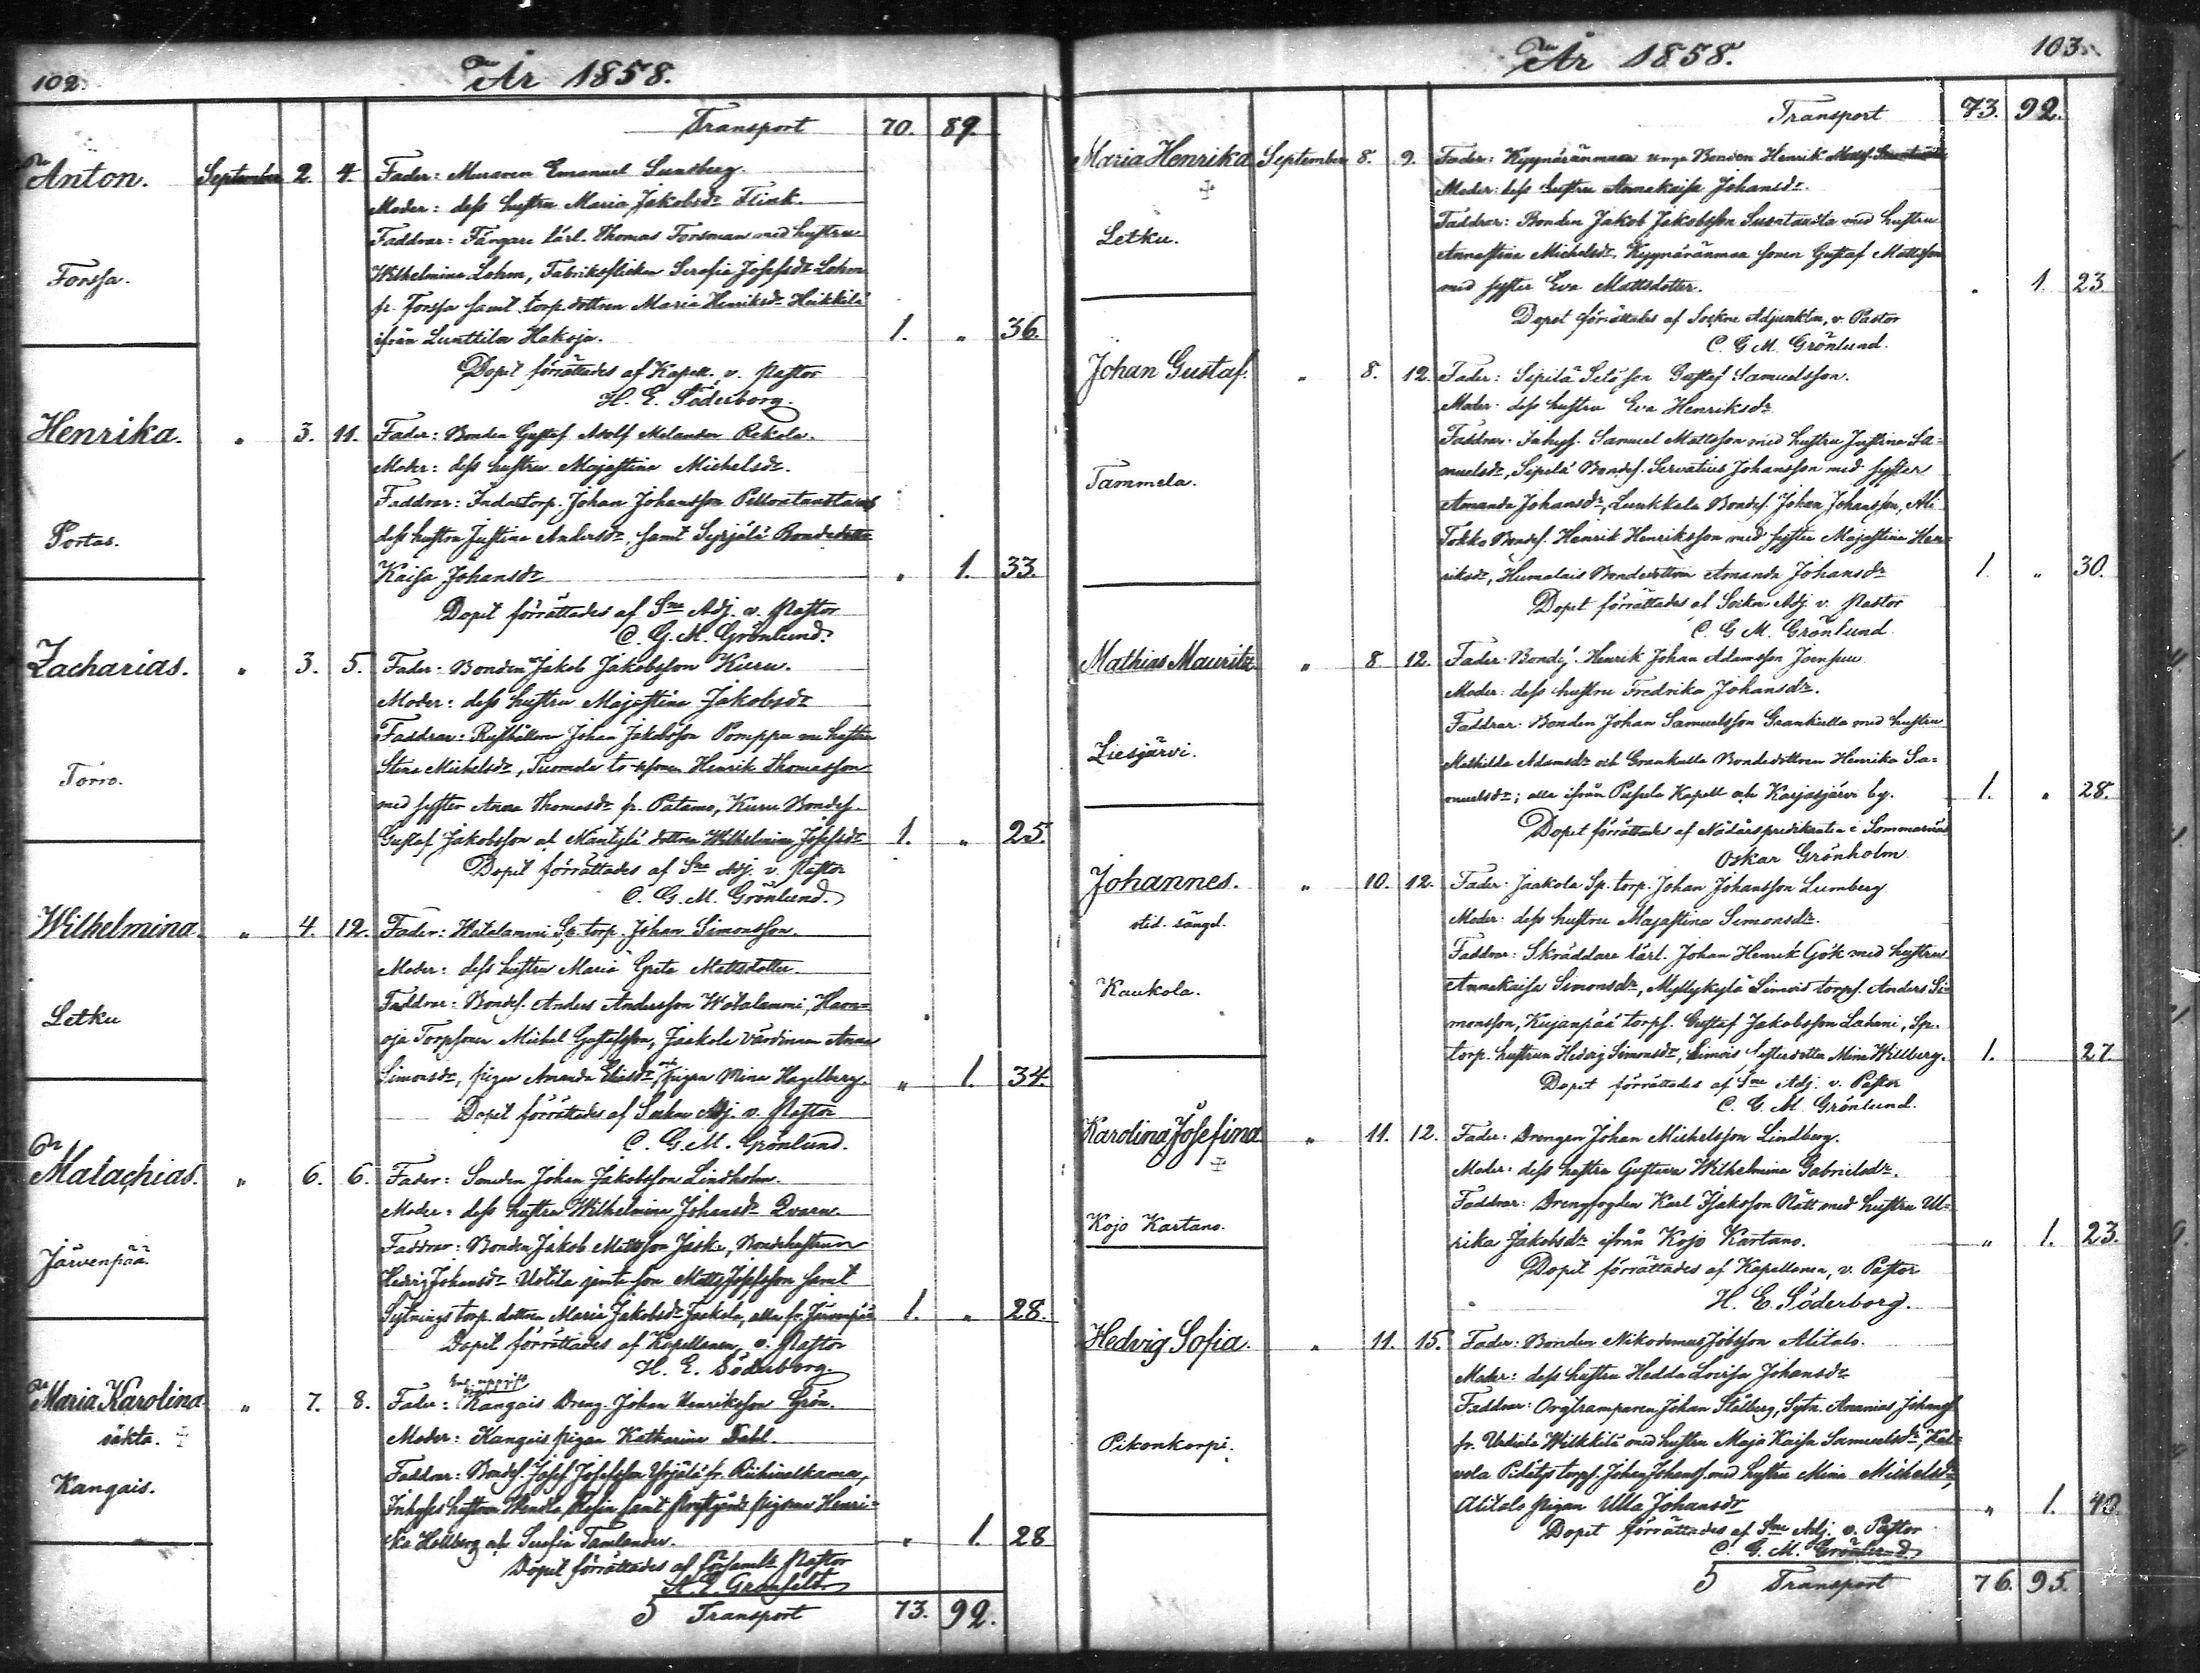 102.
År 1858.
Transport 70. 89.
Anton. September 2. 4. Fader: Muraren Emanuel Sundberg.
Moder: dess hustru Maria Jakobsdr Flink.
Faddrar: Färgare lärl. Thomas Forsman med hustru
Forssa.
Wilhelmina Lohm, Fabriksflickan Serafia Josefsdr Lohm
fr. Forssa samt torp. dottren Maria Henriksdr Heikkilä
ifrån Lunttila Haksja. 1. " 36.
Dopet förrättades af Kapell. v. Pastor
H. E. Söderborg.
Henrika. " 3. 11. Fader: Bonden Gustaf Adolf Melander Rekola.
Moder: dess hustru Majastina Michelsdr.
Faddrar: Johan Johansson
Portas.
dess hustru Justina Andersdr, samt Syrjälä Bondedotter
Kaisa Johansdr " 1. 33.
Dopet förrättades af Sne Adj. v. Pastor
C. G. M. Grönlund.
Zacharias. " 3. 5. Fader: Bonden Jakob Jakobsson Kuru.
Moder: dess hustru Majastina Jakobsdr
Faddrar: Rusthållaren Johan Jakobsson Pomppu m hustru
Torro.
Stina Michelsdr, Henrik Thomasson
med syster Anna Thomasdr fr. Patamo, Kuru Bondes.
Gustaf Jakobsson och Mäntylä dottren Wilhelmina Josefsdr 1. " 25.
Dopet förrättades af Sne Adj. v. Pastor
C. G. M. Grönlund.
Wilhelmina. " 4. 12. Fader: Watalammi Sp. torp. Johan Simonsson.
Moder: dess hustru Maria Greta Mattsdotter.
Faddrar: Bondes. Anders Andersson Watalammi, Haon=
Letku
oja Torpsonen Michel Gustafsson, Jaakola värdinnan Anna
Simonsdr, pigan Amanda Eliasdr, och pigan Mina Hagelberg. " 1. 34.
Dopet förrättades af Sockne Adj. v. Pastor
C. G. M. Grönlund.
Malachias. " 6. 6. Fader: Johan Jakobsson Lindholm.
Moder: dess hustru Wilhelmina Johansdr Qvarn.
Faddrar: Bonden Jakob Mattsson Jaska, Bondehustrun
Järvenpää.
Hedvig Johansdr Uotila son Matts Josefsson samt
Sytnings torp. dottren Maria Jakobsdr Jaakola, alla fr. Järvenpää 1. " 28.
Dopet förrättades af Kapellanen, v. Pastor
H. E. Söderborg.
Maria Karolina " 7. 8. Fader: Kangais Dreng. Johan Henriksson Grön.
oäkta.
Moder: Kangais pigan Katharina Dahl.
Kangais.
Faddrar: Bondes. Josef Josefsson Yrjölä fr. Riihivalkama,
Inhyses hustrun Wendla Rosin samt pigorna Henri=
ka Hellberg och Serafia Tamlander. " 1. 28
Dopet förrättades af Församls Pastor
A. L. Granfelt
5 Transport 73. 92.
År 1858.
103.
Transport 73. 92.
Maria Henrika September 8. 9. Fader: Kyynäränmaa unge Bonden Henrik
Moder: dess hustru Annakaisa Johansdr.
Letku.
Faddrar: Bonden Jakob Jakobsson Suontausta med hustru
Annastina Michelsdr, Kyynäränmaa sonen Gustaf Mattsson
med syster Eva Mattsdotter. " 1. 23
Dopet förrättades af Sockne Adjunkten, v. Pastor
C. G. M. Grönlund.
Johan Gustaf. " 8. 12. Fader: Sipilä son Gustaf Samuelsson.
Moder: dess hustru Eva Henriksdr
Tammela.
Faddrar: Inhys. Samuel Mattsson med hustru Justina Sa=
muelsdr, Sipilä Bondes. Servatius Johansson med syster
Amanda Johansdr, Lunkkala Bondes. Johan Johansson, Ali
Tokko Bondes. Henrik Henriksson med syster Majastina Hen=
riksdr, Humalais Bondedottren Amanda Johansdr 1. " 30.
Dopet förrättades af Sockn Adj. v. Pastor
C. G. M. Grönlund
Mathias Mauritz " 8 12. Fader: Bondes. Henrik Johan Adamsson Joensuu
Moder: dess hustru Fredrika Johansdr.
Liesjärvi.
Faddrar: Bonden Johan Samuelsson Grankulla med hustru
Mathilda Adamsdr och Grankulla Bondedottren Henrika Sa=
muelsdr; alla ifrån Pusula Kapell och Karjasjärvi by. 1. " 28.
Dopet förrättades af Nådårspredikanten i Sommarnäs
Oskar Grönholm
Johannes. " 10. 12. Fader: Jaakola Sp. torp. Johan Johansson Lumberg
Moder: dess hustru Majastina Simonsdr.
Kaukola.
Faddrar: Skräddare lärl. Johan Henrik Gök med hustru
Annakaisa Simonsdr, Myllykylä Simois torps. Anders Si=
monsson, Kujanpää torps. Gustaf Jakobsson Lahani, Sp.
torp. hustrun Hedvig Simonsdr, Simois systerdotter Mina Willberg. 1. 27
Dopet förrättades af Sne Adj. v. Pastor
C. G. M. Grönlund.
Karolina Josefina " 11. 12. Fader: Drengen Johan Michelsson Lindberg.
Moder: dess hustru Gustava Wilhelmina Gabrielsdr.
Kojo Kartano.
Faddrar: Drengfogden Karl Isaksson Rätt med hustru Ul=
rika Jakobsdr ifrån Kojo Kartano. " 1. 23.
Dopet förrättades af Kapellanen, v. Pastor
H. E. Söderborg.
Hedvig Sofia. " 11. 15. Fader: Bonden Nikodemus Jobsson Alitalo.
Moder: dess hustru Hedda Lovisa Johansdr
Pikonkorpi.
Faddrar: Orgtramparen Johan Stålberg, Sytn. Ananias Johanss
fr. Urdiala Wilkkilä med hustru Maja Kaisa Samuelsdr, Kal=
vola Pidätys torps. Johan Johanss. med hustru Mina Michelsdr,
Alitalo pigan Ulla Johansdr " 1. 40.
Dopet förrättades af Sne Adj. v. Pastor
C. G. M. Grönlund
5 Transport 76. 95.